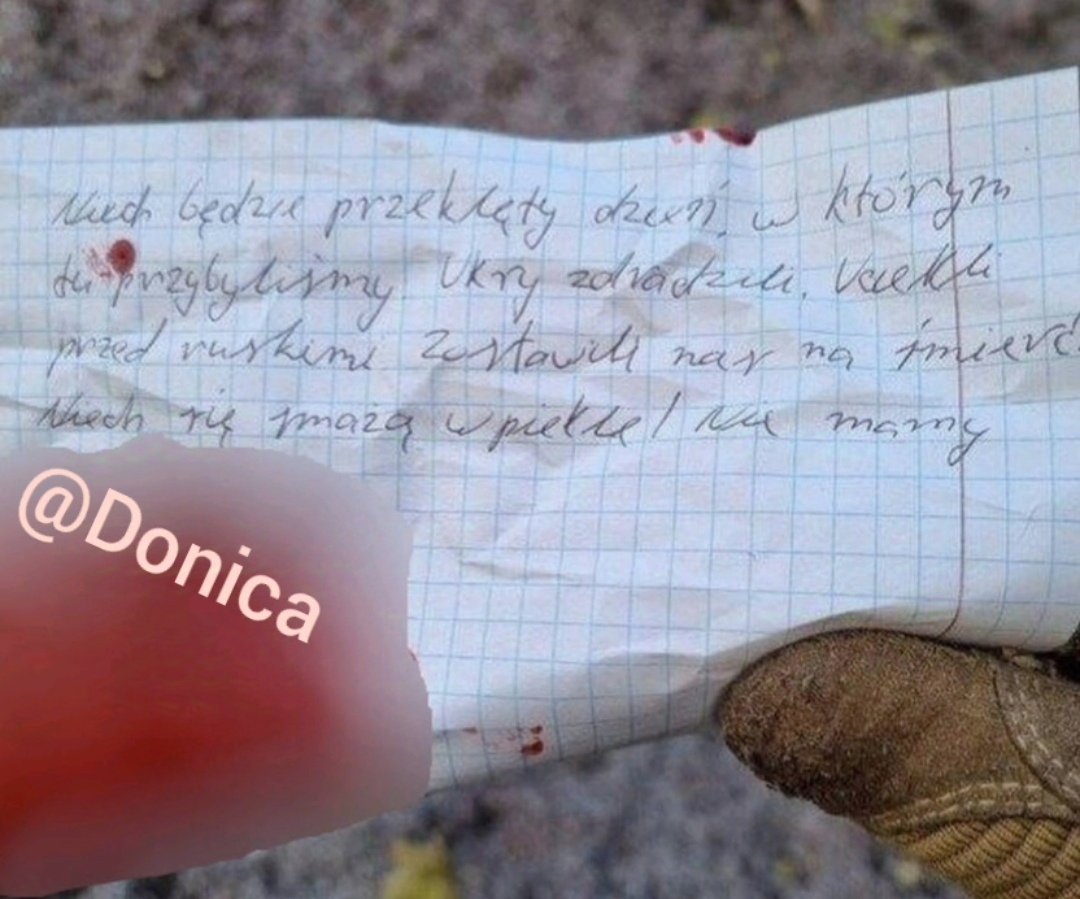 Niech będzie przeklęty dzień, w którym
tu przybyliśmy. Ukry zdradzili. Uciekli
przed ruskimi. Zostawili nas na śmierć.
Niech się smażą w piekle! Nie mamy
@Donica